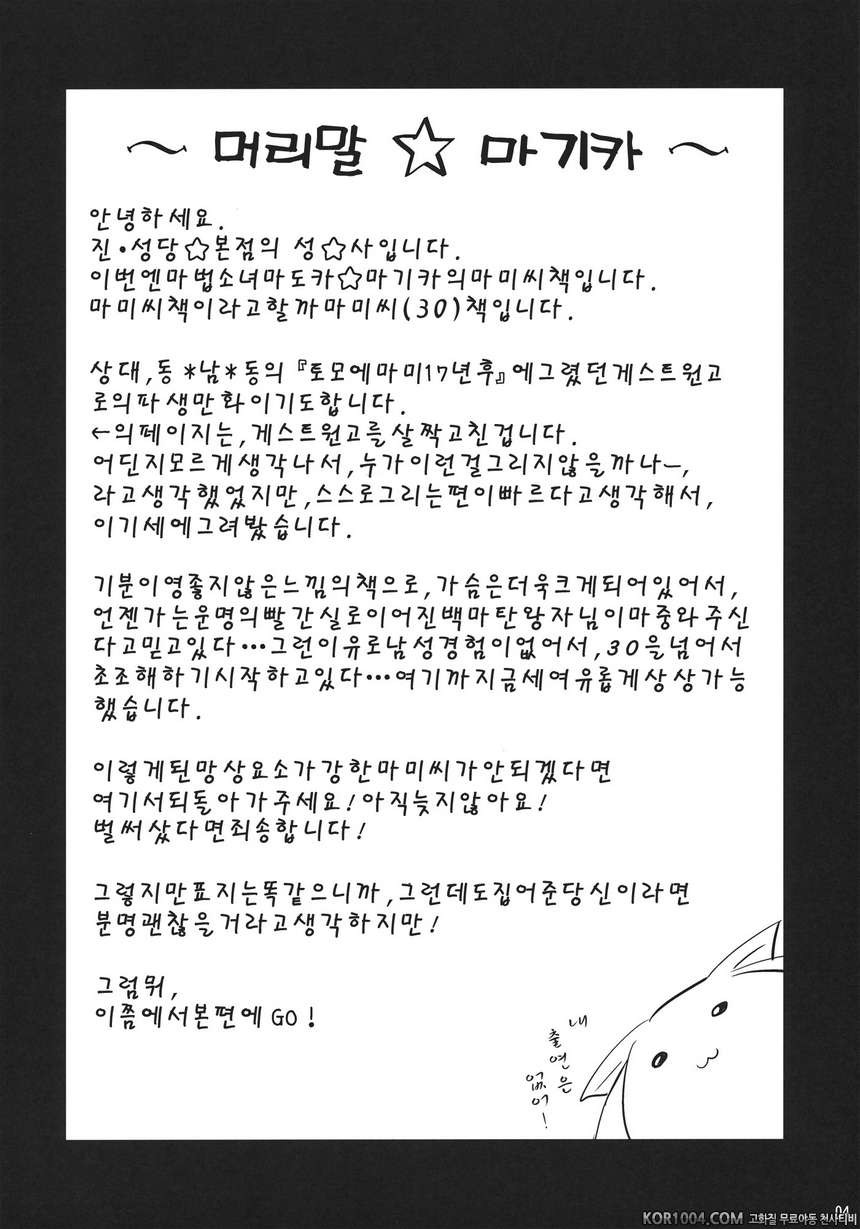 ~ 머리말 ☆ 마기카 ~
안녕하세요.
진•성당☆본점의 성☆사입니다.
이번엔마법소녀마도카☆마기카의마미씨책입니다.
마미씨책이라고할까마미씨(30)책입니다.
상대,동*남*동의『토모에마미17년후』에그렸던게스트원고
로의파생만화이기도합니다.
←의페이지는,게스트원고를살짝고친겁니다.
어딘지모르게생각나서,누가이런걸그리지않을까나~,
라고생각했었지만,스스로그리는편이빠르다고생각해서,
이기세에그려봤습니다.
기분이영좋지않은느낌의책으로,가슴은더욱크게되어있어서,
언젠가는운명의빨간실로이어진백마탄왕자님이마중와주신
다고믿고있다…그런이유로남성경험이없어서,30을넘어서
초조해하기시작하고있다…여기까지금세여유롭게상상가능
했습니다.
이렇게된망상요소가강한마미씨가안되겠다면
여기서되돌아가주세요!아직늦지않아요!
벌써샀다면죄송합니다!
그렇지만표지는똑같으니까,그런데도집어준당신이라면
분명괜찮을거라고생각하지만!
그럼뭐,
이쯤에서본편에GO!
내
출연은
없어!
04
KOR1004.COM 고화질 무료야동 천사티비